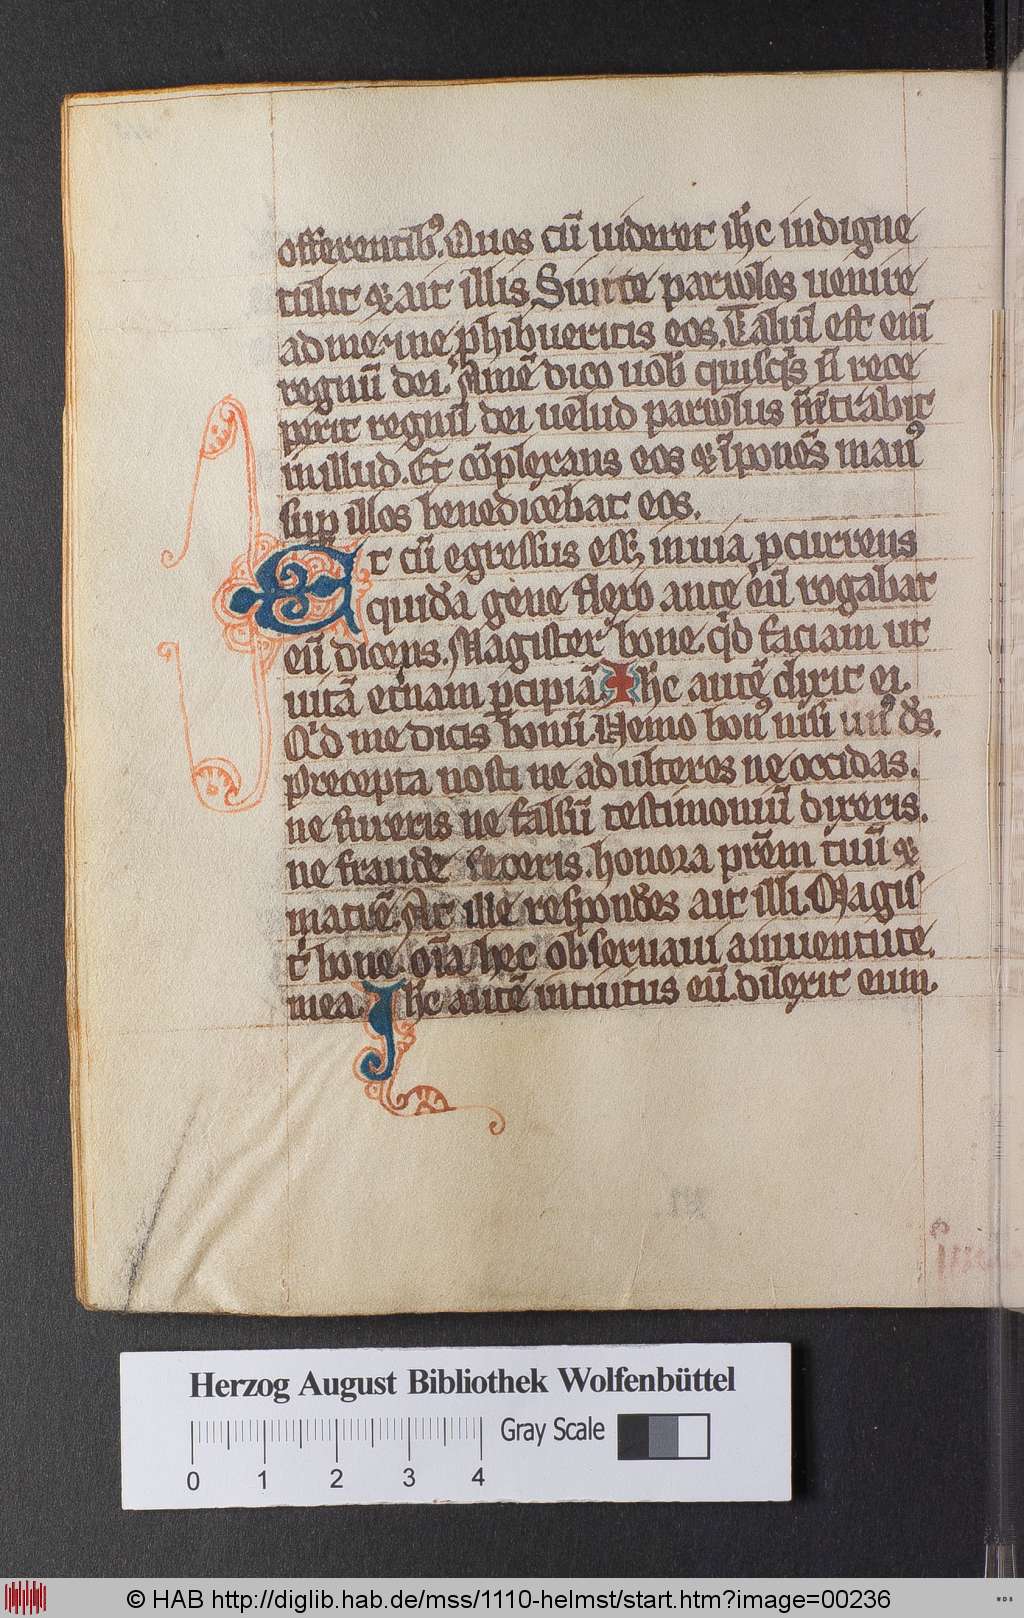 offerentib⁹. Quos cū uideret ih̄c indigne
tulit ⁊ ait illis. Sinite paruulos uenire
ad me ⁊ ne ꝓhibueritis eos. Talium est enī
regnū dei. Amē dico uob̄ quisq̄s n̄ rece
perit regnū dei uelud paruulus n̄ intrabit
in illud. Et cōplexans eos ⁊ īponēs man⁹
suꝑ illos benedicebat eos.
Et cū egressus ess; in uia ꝓcurrens
quidā genu flexo ante eū rogabat
eū dicens. Magister bone. qͥd faciam ut
uitā et̄nam ꝑcipiā. Ih̄c autē dixit ei.
Qͥd me dicis bonū. Nemo bon⁹ nisi un⁹ d̄s.
Precepta nosti ne adulteres ne occidas.
ne fureris ne falsū testimoniū dixeris.
ne fraudē feceris. honora pr̄em tuū ⁊
matrē. At ille respondēs ait illi. Magis
t̄ bone. oīa hec obseruaui a iuuentute.
mea. Ih̄c autē intuitus eū. dilexit eum.
Herzog August Bibliothek Wolfenbüttel
Gray Scale
0 1 2 3 4
© HAB http://diglib.hab.de/mss/1110-helmst/start.htm?image=00236